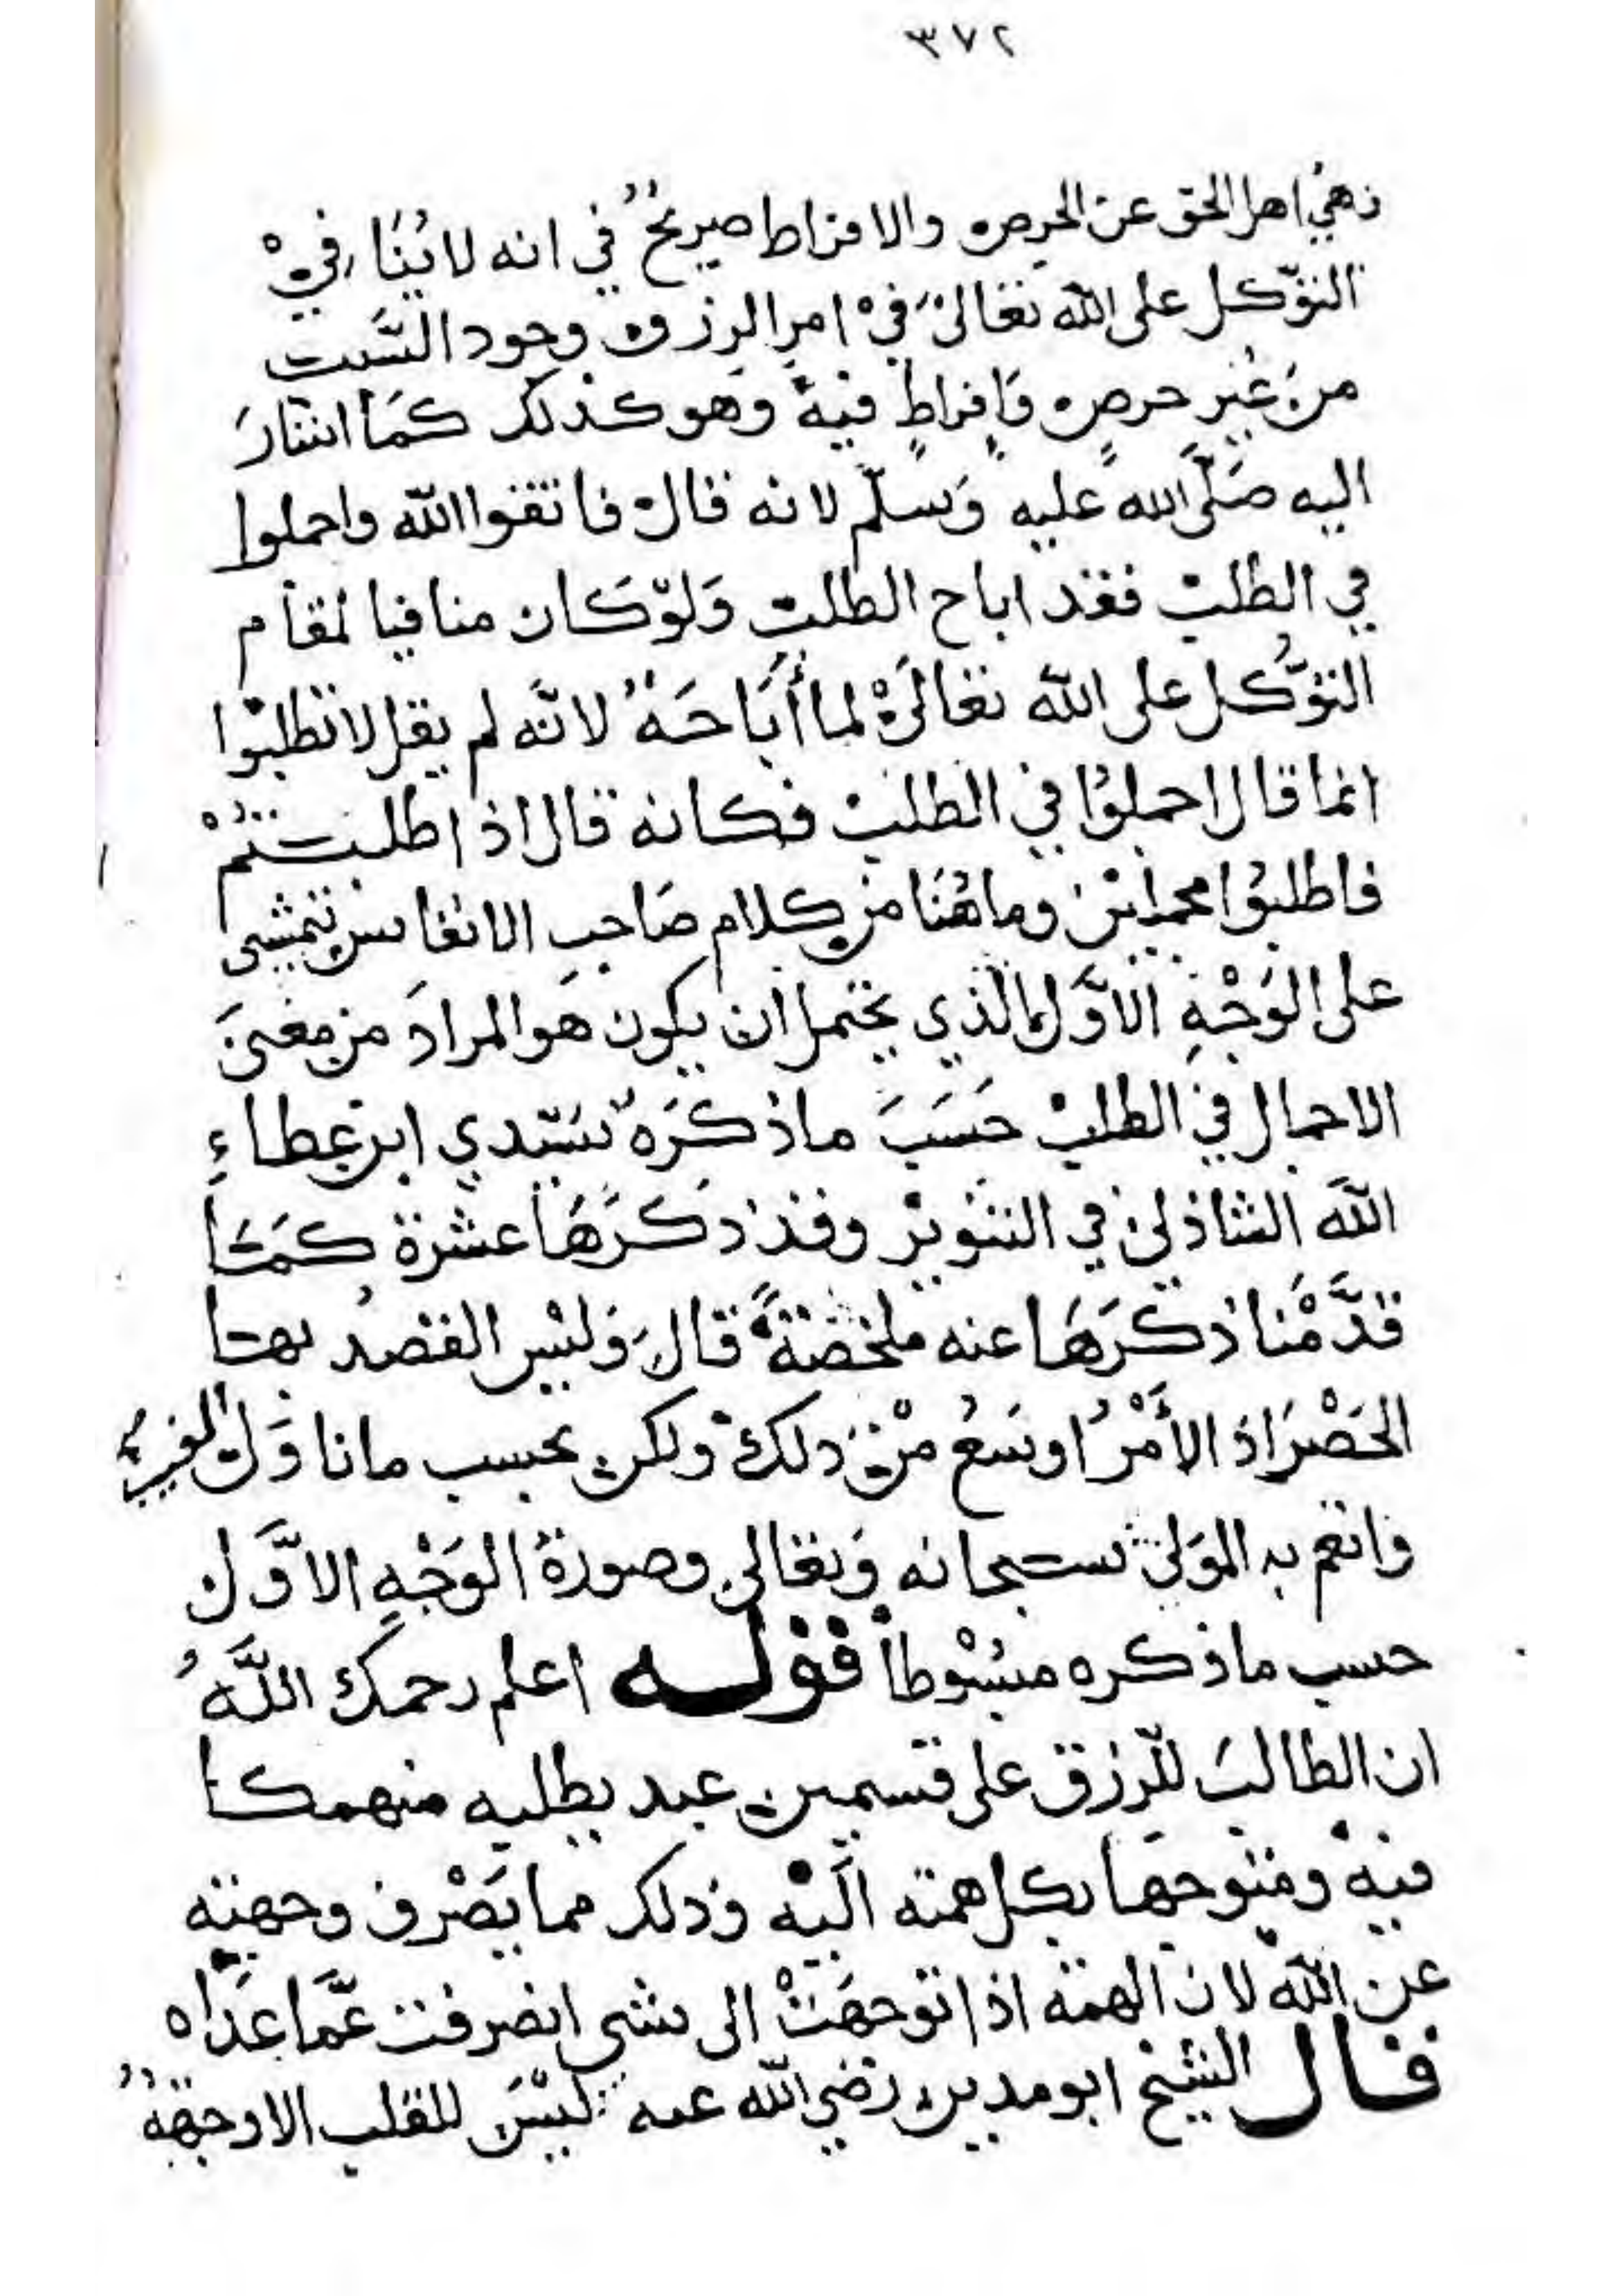 ٣٧٢
نهي اهل الحق عن الحرص والافراط صريح في انه لا ينافي
التوكل على الله تعالى في امر الرزق وجود السبب
من غير حرص وافراط فيه وهو كذلك كما اشار
اليه صلى الله عليه وسلم لانه قال فاتقوا الله واجملوا
في الطلب فقد اباح الطلب ولو كان منافيا لمقام
التوكل على الله تعالى لما أباحه لانه لم يقل لا تطلبوا
انما قال اجملوا في الطلب فكانه قال اذا طلبتم
فاطلبوا مجملين وما هنا من كلام صاحب الانفاس يتمشى
على الوجه الاول الذي يحتمل ان يكون هو المراد من معنى
الاجمال في الطلب حسب ما ذكره سيدي ابن عطاء
الله الشاذلي في التنوير وقد ذكرها عشرة كما
قدمنا ذكرها عنه ملخصة قال وليس القصد بها
الحصر اذ الأمر اوسع من ذلك ولكن بحسب ما ناول الغيب
وانعم به المولى سبحانه وتعالى وصورة الوجه الاول
حسب ما ذكره مبسوطا قوله اعلم رحمك الله
ان الطالب للرزق على قسمين عبد يطلبه منهمكا
فيه ومتوجها بكل همته اليه وذلك مما يصرف وجهته
عن الله لان الهمة اذا توجهت الى شي انصرفت عما عداه
قال الشيخ ابو مدين رضي الله عنه ليس للقلب الا وجهة